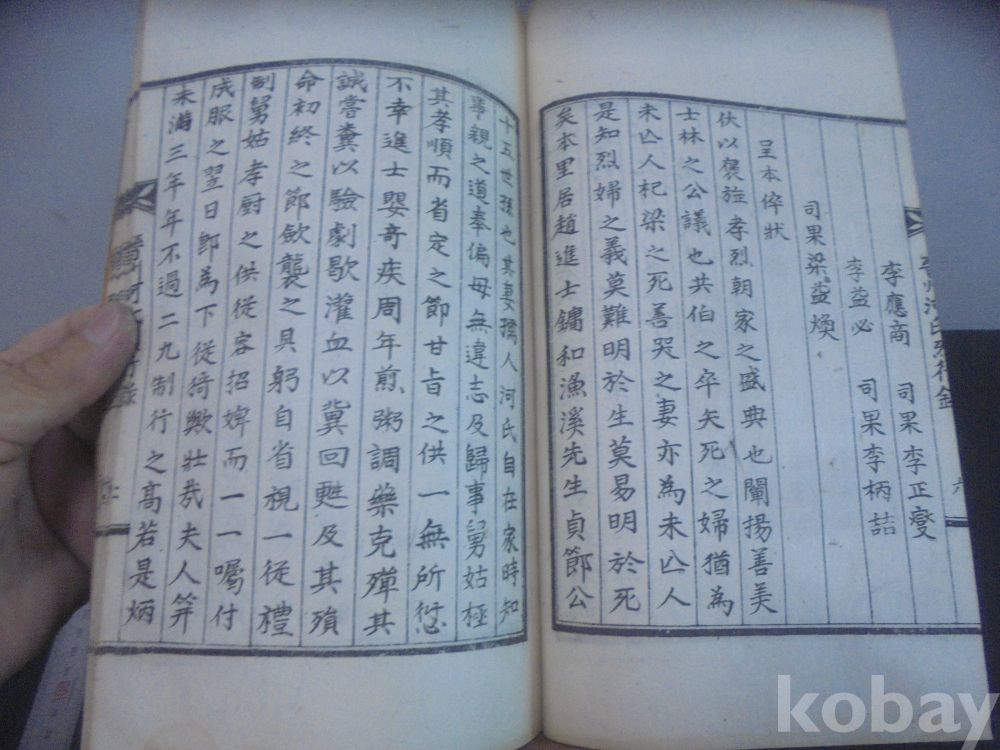 晉州河氏烈行錄 六
李應商 司果李正燮
李益必 司果李柄喆
司果梁益煥
呈本倅狀
伏以褒旌孝烈朝家之盛典也闡揚善美
士林之公議也共伯之卒矢死之婦猶為
未亾人杞梁之死善哭之妻亦為未亾人
是知烈婦之義莫難明於生莫易明於死
矣本里居趙進士鏞和漁溪先生貞節公
十五世孫也其妻孺人河氏自在家時知
事親之道奉偏母無違志及歸事舅姑極
其孝順而省定之節甘旨之供一無所愆
不幸進士嬰奇疾周年煎粥調藥克殫其
誠嘗糞以驗劇歇灌血以冀回甦及其殞
命初終之節歛襲之具躬自省視一從禮
制舅姑孝廚之供從容招婢而一一囑付
成服之翌日卽為下從猗歟壯哉夫人筓
未滿三年年不過二九制行之高若是炳
kobay